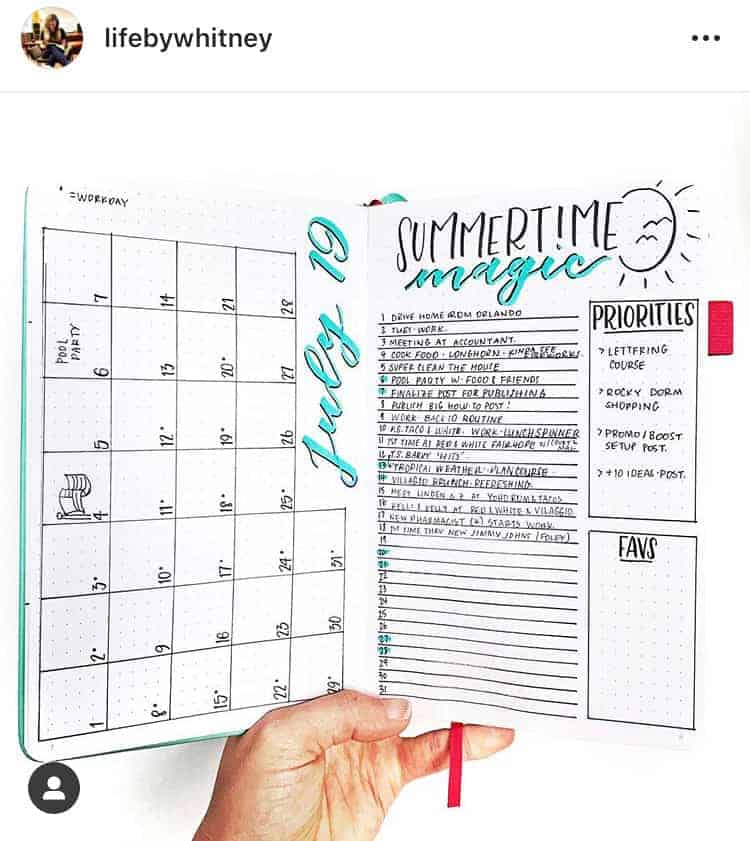 lifebywhitney
• =WORKDAY
July 19
1 2• 3• 4 5 6 7
POOL
PARTY
8• 9 10• 11• 12• 13 14
15• 16 17• 18• 19• 20• 21
22• 23 24• 25• 26 27 28
29• 30 31•
SUMMERTIME
magic
1 DRIVE HOME FROM ORLANDO
2 WORK
3 MEETING AT ACCOUNTANT.
4 COOK FOOD - LONGHORN - KINDA SEE FIREWORKS.
5 SUPER CLEAN THE HOUSE
6 POOL PARTY W. FOOD & FRIENDS
7 FINALIZE POST FOR PUBLISHING
8 PUBLISH BIG HOW-TO POST!
9 WORK - BACK TO ROUTINE
10 TACO & WHITE - WORK - LUNCH SPINNER
11 1ST TIME AT RED & WHITE FAIRHOPE
12 T.S. BARRY "HITS"
13 TROPICAL WEATHER - PLAN COURSE
14 VILLAGIO BRUNCH - REFRESHING
15 MEET LINDEN AT YOHO RUM & TACOS
16 KELLI & KELLY AT RED & WHITE & VILAGGIO
17 NEW PHARMACIST STARTS WORK
18 1ST TIME THRU NEW JIMMY JOHNS (FOLEY)
19
20
21
22
23
24
25
26
27
28
29
30
31
PRIORITIES
> LETTERING
COURSE
> ROCKY DORM
SHOPPING
> PROMO/BOOST
SETUP POST.
> +10 IDEAS POST.
FAVS